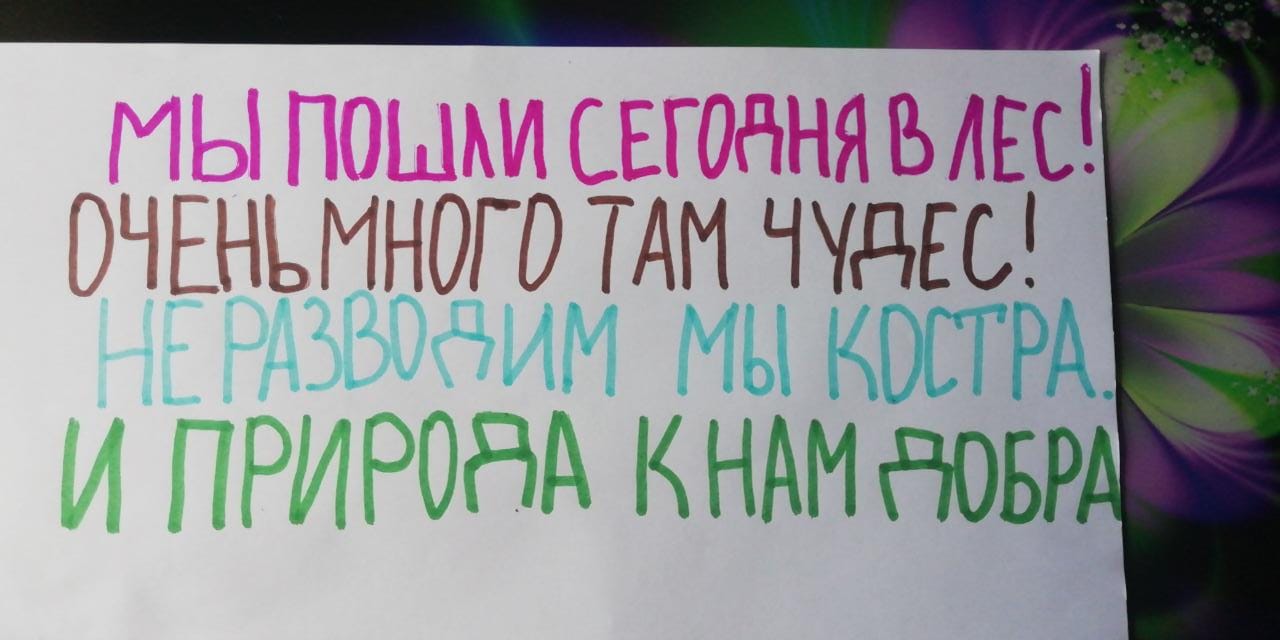 МЫ ПОШЛИ СЕГОДНЯ В ЛЕС!
ОЧЕНЬ МНОГО ТАМ ЧУДЕС!
НЕ РАЗВОДИМ МЫ КОСТРА.
И ПРИРОДА К НАМ ДОБРА